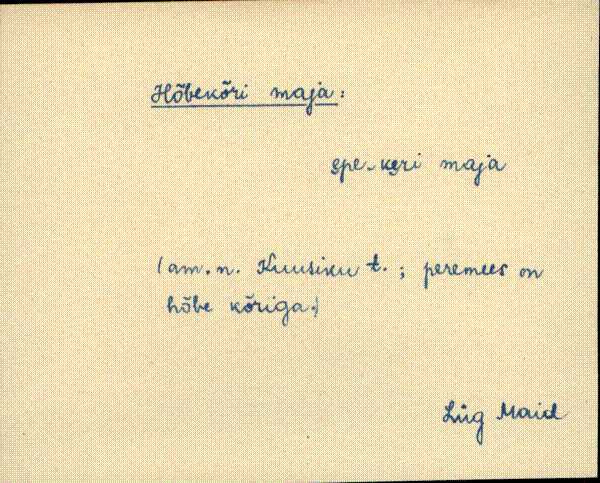 Hõbekõri maja:
ep̀e-ke̮ri maja
(am. n. Kuusiku t.; peremees on
hõbe kõriga.)
Lüg Maid